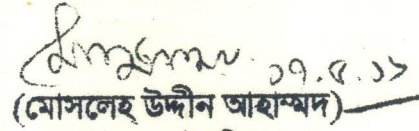 ১৭.৫.১১
(মোসলেহ্ উদ্দীন আহাম্মদ)